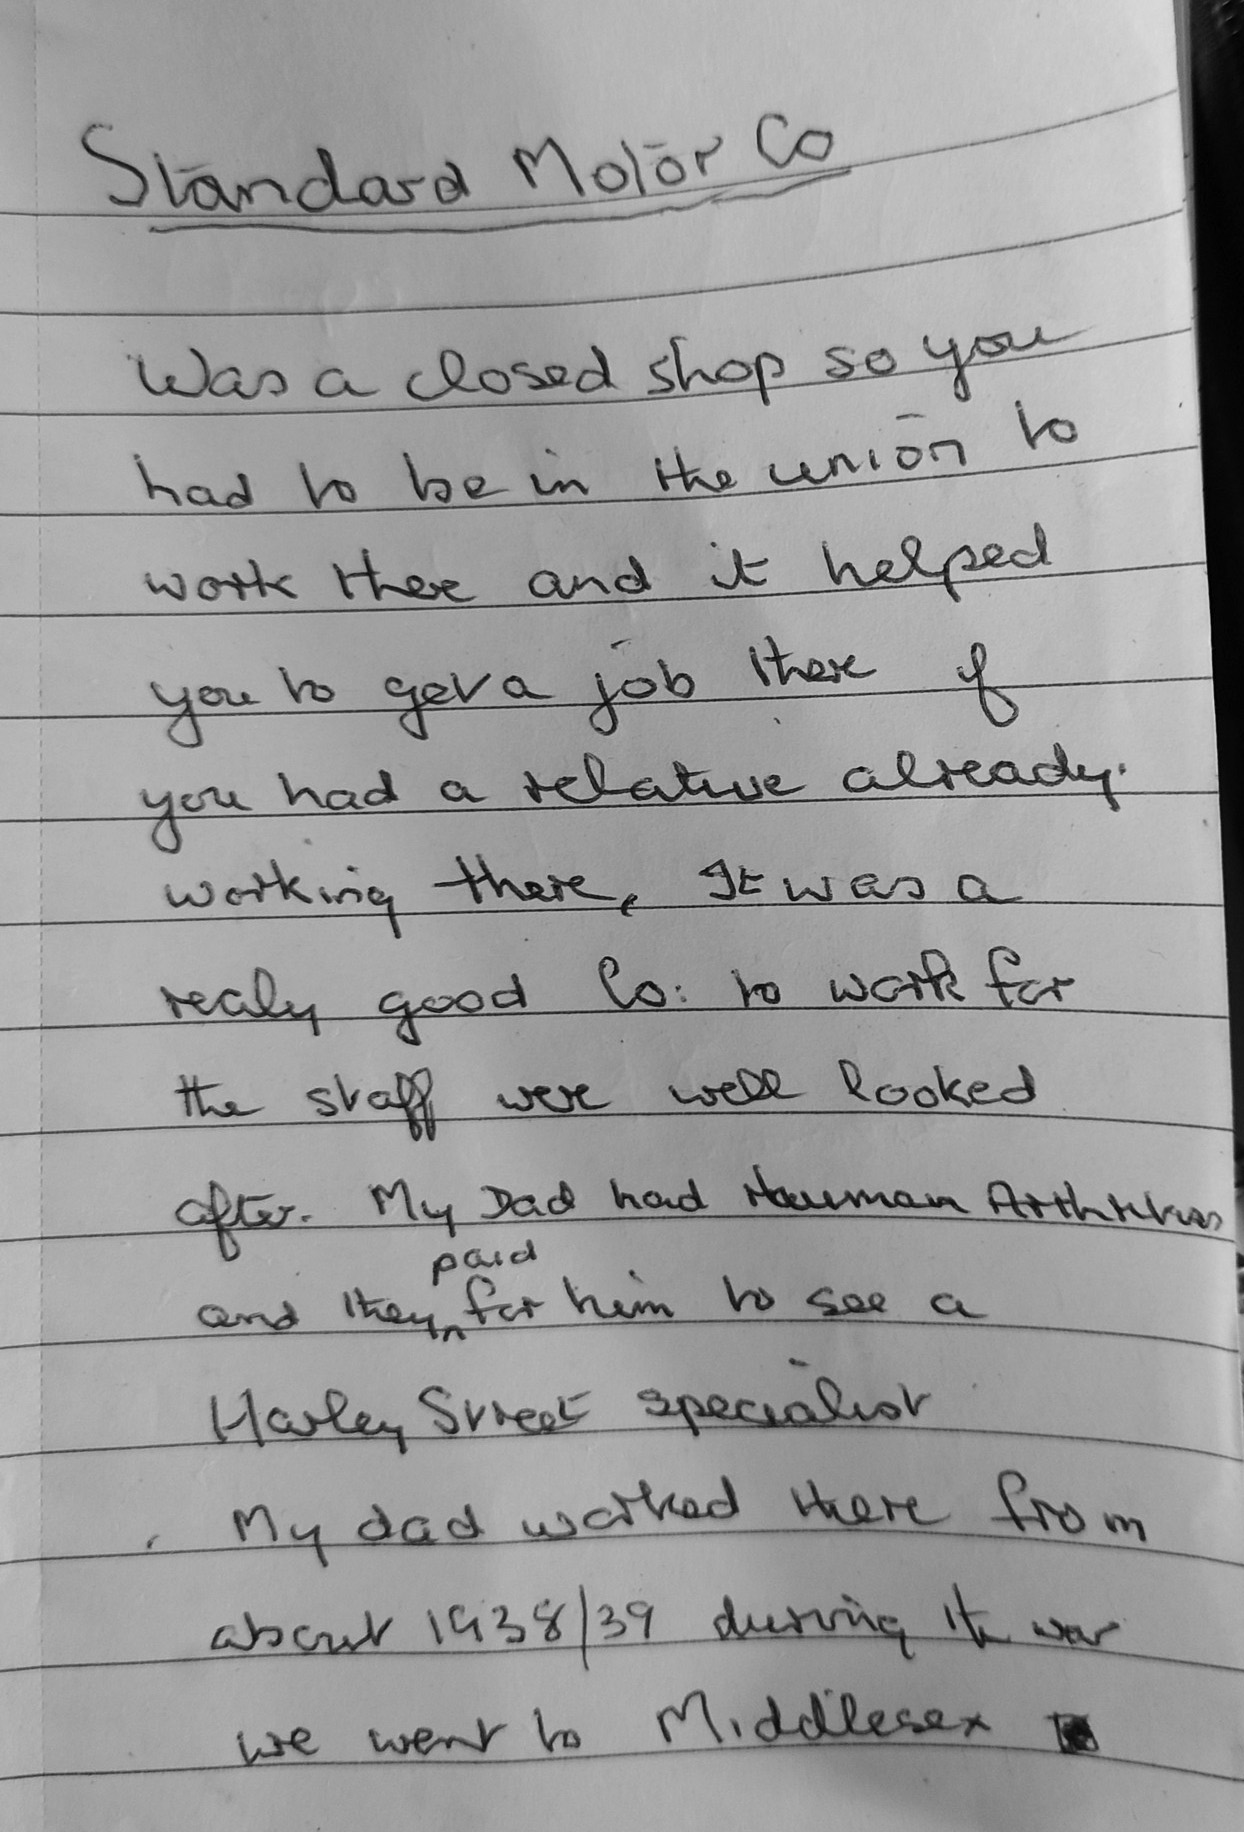 Standard Motor Co
Was a closed shop so you
had to be in the union to
work there and it helped
you to get a job there if
you had a relative already.
working there, It was a
realy good Co: to work for
the staff were well looked
after. My Dad had Arthritus
and they paid for him to see a
Harley Street specialist
My dad worked there from
about 1938/39 during the war
we went to Middlesex